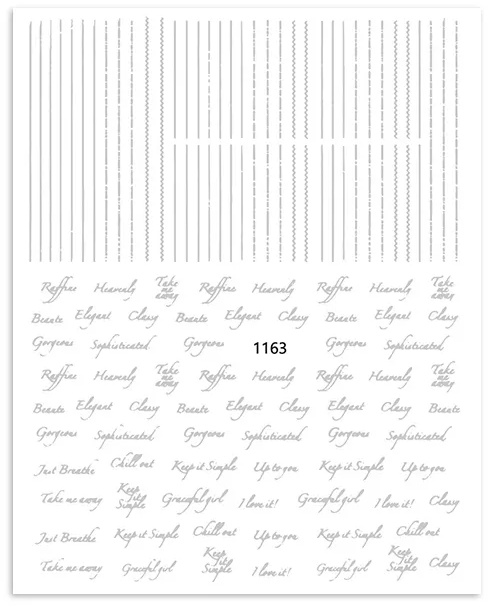 Raffine Heavenly Take me away Raffine Heavenly Raffine Heavenly Take me away
Beaute Elegant Classy Beaute Elegant Classy Beaute Elegant Classy
Gorgeous Sophisticated Gorgeous 1163 Gorgeous Sophisticated
Raffine Heavenly Take me away Raffine Heavenly Raffine Heavenly Take me away
Beaute Elegant Classy Beaute Elegant Classy Beaute Elegant Classy Beaute
Gorgeous Sophisticated Gorgeous Sophisticated Gorgeous Sophisticated
Just Breathe Chill out Keep it Simple Up to you Keep it Simple Up to you
Take me away Keep it Simple Graceful girl I love it! Graceful girl I love it! Classy
Just Breathe Keep it Simple Chill out Up to you Keep it Simple Chill out
Take me away Graceful girl Keep it Simple I love it! Graceful girl Keep it Simple Classy